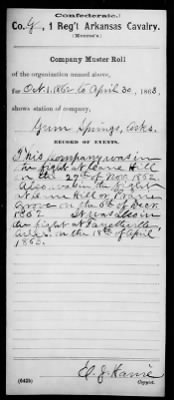 Confederate.
Co. G, 1 Reg't Arkansas Cavalry.
(Monroe's)
Company Muster Roll
of the organization named above,
for Oct. 1, 1862 to April 30, 1863.
shows station of company,
Gum Springs, Arks.
RECORD OF EVENTS.
This company was in
the fight at Cane Hill
on the 29th of Nov. 1862.
Also was in the fight
Grove on the 8th of Dec.
1862. It was also in
the fight at Fayetteville,
Ark. on the 18th of April
1863.
(642b)
Copyist.